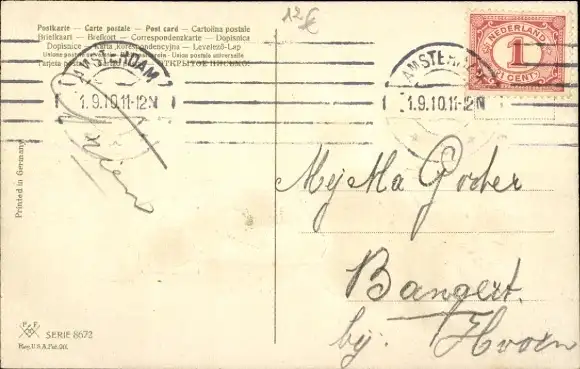 Postkarte — Carte postale — Post card — Cartolina postale
Briefkart — Brefkort — Correspondenzkarte — Dopisnice
Dopisnice — Karta korespondencyjna — Levelező-Lap
Unione postale universelle Weltpostverein Union postale universelle
Tarjeta postal ОТКРЫТОЕ ПИСЬМО
12€
NEDERLAND
1
CENT
AMSTERDAM
1.9.10.11-12N
AMSTERDAM
1.9.10.11-12N
Printed in Germany
Mej Ma Goder
Bangert.
bij. Hoorn
P F B
SERIE 8672
Reg. U.S.A. Pat. Off.